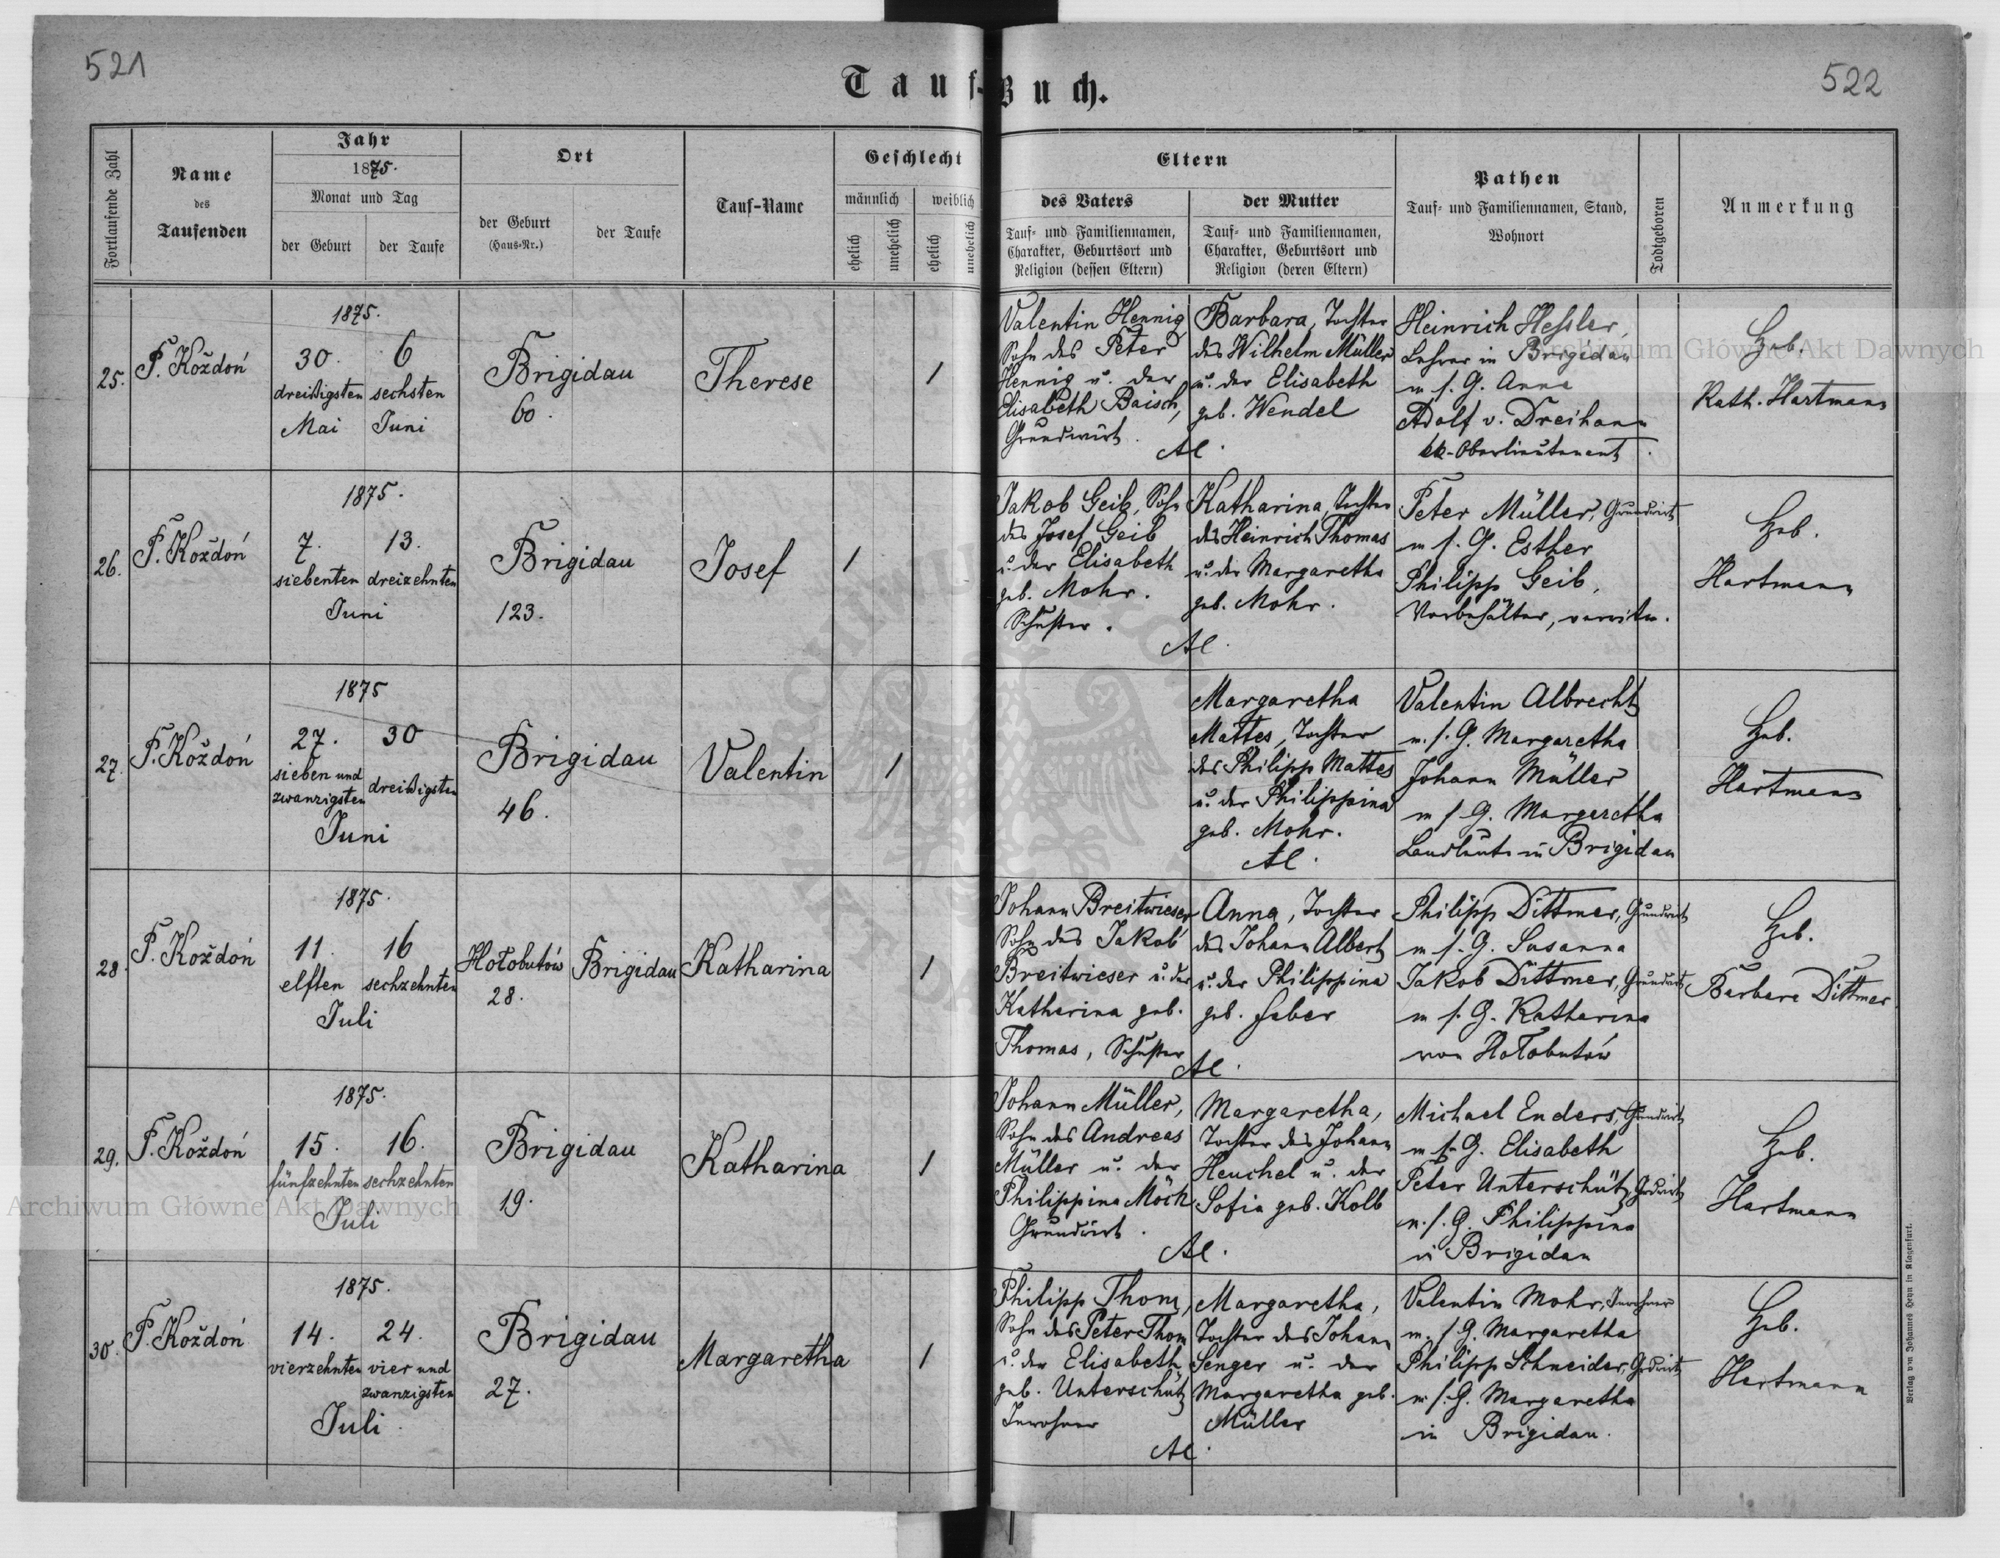 521
522
Tauf-Buch.
Fortlaufende Zahl
Name
des
Taufenden
Jahr
1875.
Monat und Tag
der Geburt
der Taufe
Ort
der Geburt
(Haus-Nr.)
der Taufe
Tauf-Name
Geschlecht
männlich
weiblich
ehelich
unehelich
ehelich
unehelich
Eltern
des Vaters
Tauf- und Familiennamen,
Charakter, Geburtsort und
Religion (dessen Eltern)
der Mutter
Tauf- und Familiennamen,
Charakter, Geburtsort und
Religion (deren Eltern)
Pathen
Tauf- und Familiennamen, Stand,
Wohnort
Todtgeboren
Anmerkung
25.
P. Koždoń
1875.
30.
dreißigsten
Mai
6
sechsten
Juni
Brigidau
60.
Therese
1
Valentin Hennig
Sohn des Peter
Hennig u. der
Elisabeth Baisch,
Grundwirt.
Barbara, Tochter
des Wilhelm Müller
u. der Elisabeth
geb. Wendel
AC.
Heinrich Hessler,
Lehrer in Brigidau
m s. G. Anna
Adolf v. Dreihann
kk-Oberlieutenant.
Heb.
Kath. Hartmann
26.
P. Koždoń
1875.
7.
siebenten
Juni
13.
dreizehnten
Brigidau
123.
Josef
1
Jakob Geib, Sohn
des Josef Geib
u. der Elisabeth
geb. Mohr.
Schuster.
Katharina, Tochter
des Heinrich Thomas
u. der Margaretha
geb. Mohr.
AC.
Peter Müller, Grundwirt
m s. G. Esther
Philipp Geib,
Vorbehälter, verwitw.
Heb.
Hartmann
27.
P. Koždoń
1875
27.
sieben und
zwanzigsten
Juni
30
dreißigsten
Brigidau
46.
Valentin
1
Margaretha
Mattes, Tochter
des Philipp Mattes
u. der Philippina
geb. Mohr.
AC.
Valentin Albrecht
m. s. G. Margaretha
Johann Müller
m s G. Margaretha
Landleute in Brigidau
Heb.
Hartmann
28.
P. Koždoń
1875.
11.
elften
Juli
16
sechzehnten
Hołobutów
28.
Brigidau
Katharina
1
Johann Breitwieser
Sohn des Jakob
Breitwieser u. der
Katharina geb.
Thomas, Schuster
Anna, Tochter
des Johann Albert
u. der Philippina
geb. Faber
AC.
Philipp Dittmer, Grundwirt
m s. G. Susanna
Jakob Dittmer, Grundwirt
m s. G. Katharina
von Hołobutów
Heb.
Barbara Dittmer
29.
P. Koždoń
1875.
15.
fünfzehnten
Juli
16.
sechzehnten
Brigidau
19.
Katharina
1
Johann Müller,
Sohn des Andreas
Müller u. der
Philippina Möck
Grundwirt.
Margaretha,
Tochter des Johann
Heuchel u. der
Sofia geb. Kolb
AC.
Michael Enders, Grundwirt
m s. G. Elisabeth
Peter Unterschütz, Grdwirt
m. s. G. Philippina
in Brigidau
Heb.
Hartmann
30.
P. Koždoń
1875.
14.
vierzehnten
Juli.
24.
vier und
zwanzigsten
Brigidau
27.
Margaretha
1
Philipp Thom,
Sohn des Peter Thom
u. der Elisabeth
geb. Unterschütz
Inwohner
Margaretha,
Tochter des Johann
Senger u. der
Margaretha geb.
Müller
AC.
Valentin Mohr, Inwohner
m. s. G. Margaretha
Philipp Schneider, Grdwirt
m s. G. Margaretha
in Brigidau.
Heb.
Hartmann
Verlag von Johannes Heyn in Klagenfurt.
Archiwum Główne Akt Dawnych
Archiwum Główne Akt Dawnych